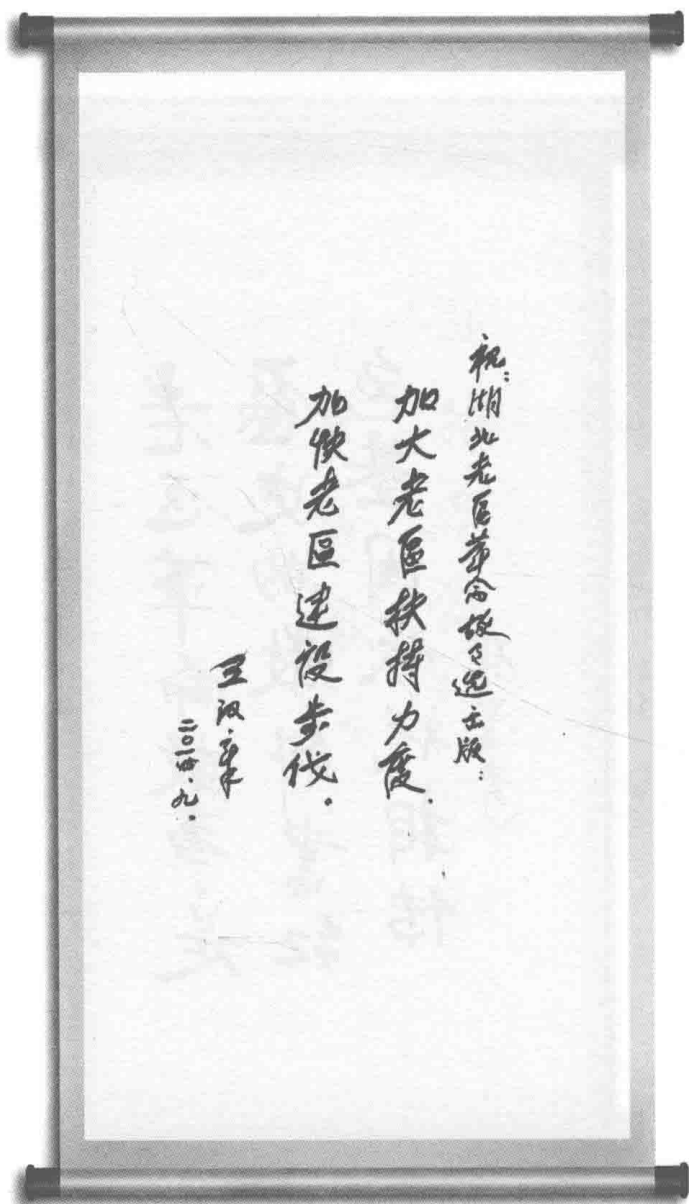 祝：湖北老区革命故事选出版：
加大老區扶持力度.
加快老區建设步伐。
王汉章
二〇一四、九。